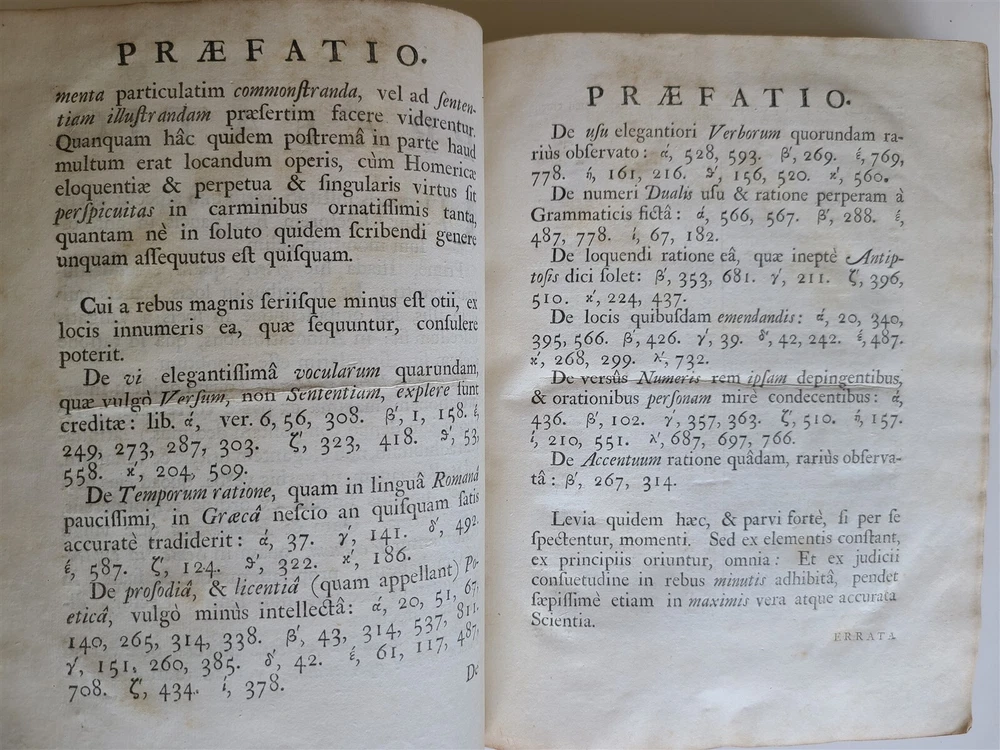 PRÆFATIO.
menta particulatim commonſtranda, vel ad ſenten-
tiam illuſtrandam præſertim facere viderentur.
Quanquam hâc quidem poſtremâ in parte haud
multum erat locandum operis, cùm Homericæ
eloquentiæ & perpetua & ſingularis virtus ſit
perſpicuitas in carminibus ornatiſſimis tanta,
quantam nè in ſoluto quidem ſcribendi genere
unquam aſſequutus eſt quiſquam.
Cui a rebus magnis ſeriiſque minus eſt otii, ex
locis innumeris ea, quæ ſequuntur, conſulere
poterit.
De vi elegantiſſimâ vocularum quarundam,
quæ vulgò Verſum, non Sententiam, explere ſunt
creditæ: lib. ά, ver. 6, 56, 308. β', 1, 158. έ,
249, 273, 287, 303. ζ', 323, 418. ϑ', 53,
558. κ', 204, 509.
De Temporum ratione, quam in linguâ Romanâ
pauciſſimi, in Græcâ neſcio an quiſquam ſatis
accuratè tradiderit: ά, 37. γ', 141. δ', 492.
έ, 587. ζ', 124. ϑ', 322. κ', 186.
De proſodiâ, & licentiâ (quam appellant) Po-
eticâ, vulgò minùs intellectâ: ά, 20, 51, 67,
140, 265, 314, 338. β', 43, 314, 537, 811.
γ', 151, 260, 385. δ', 42. έ, 61, 117, 487,
708. ζ', 434. ί, 378.
De
PRÆFATIO.
De uſu elegantiori Verborum quorundam ra-
riùs obſervato: ά, 528, 593. β', 269. έ, 769,
778. ή, 161, 216. ϑ', 156, 520. κ', 560.
De numeri Dualis uſu & ratione perperam à
Grammaticis fictâ: ά, 566, 567. β', 288. έ,
487, 778. ί, 67, 182.
De loquendi ratione eâ, quæ ineptè Antip-
toſis dici ſolet: β', 353, 681. γ', 211. ζ', 396,
510. κ', 224, 437.
De locis quibuſdam emendandis: ά, 20, 340,
395, 566. β', 426. γ', 39. δ', 42, 242. έ, 487.
κ', 268, 299. λ', 732.
De versûs Numeris rem ipſam depingentibus,
& orationibus perſonam mirè condecentibus: ά,
436. β', 102. γ', 357, 363. ζ', 510. ή, 157.
ί, 210, 551. λ', 687, 697, 766.
De Accentuum ratione quâdam, rariùs obſerva-
tâ: β', 267, 314.
Levia quidem hæc, & parvi fortè, ſi per ſe
ſpectentur, momenti. Sed ex elementis conſtant,
ex principiis oriuntur, omnia: Et ex judicii
conſuetudine in rebus minutis adhibitâ, pendet
ſæpiſſimè etiam in maximis vera atque accurata
Scientia.
ERRATA